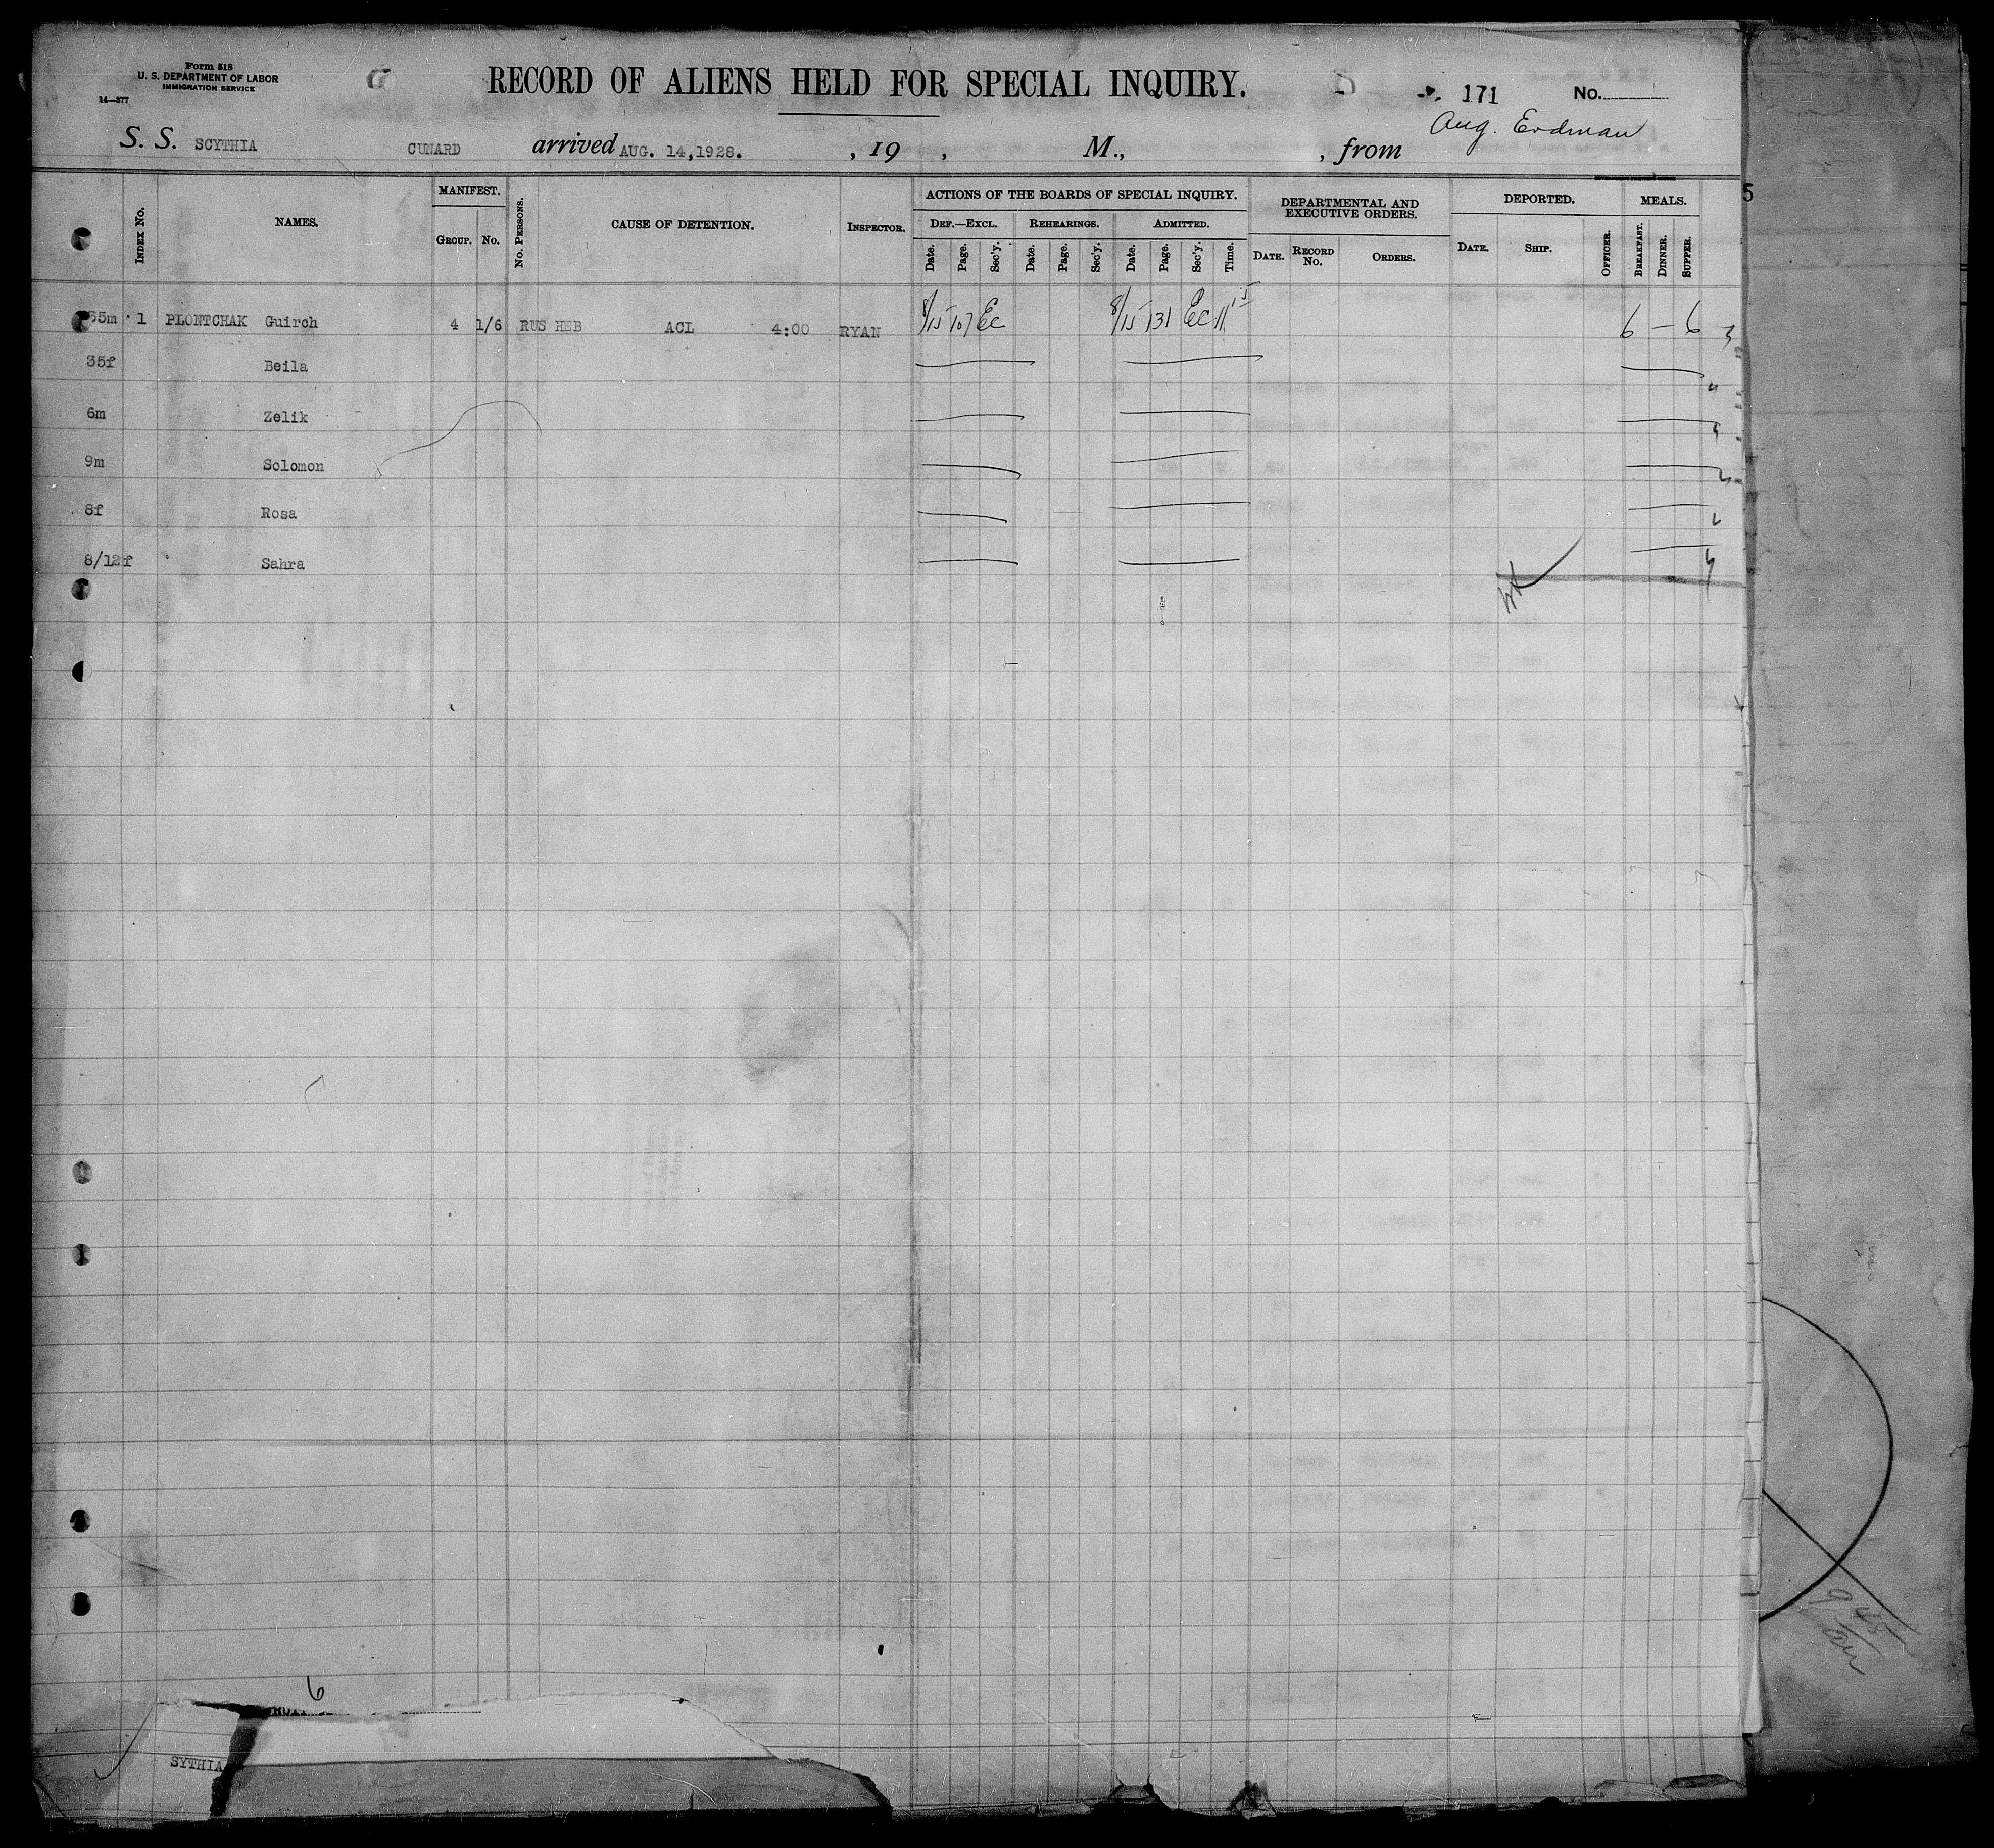 Form 518
U. S. DEPARTMENT OF LABOR
IMMIGRATION SERVICE
14—377
G
RECORD OF ALIENS HELD FOR SPECIAL INQUIRY.
171 No.
Aug. Erdman
S. S. SCYTHIA CUNARD arrived AUG. 14,1928. , 19 , M., , from
5
INDEX NO. NAMES. MANIFEST. GROUP. NO. NO. PERSONS. CAUSE OF DETENTION. INSPECTOR. ACTIONS OF THE BOARDS OF SPECIAL INQUIRY. DEPARTMENTAL AND EXECUTIVE ORDERS. DEPORTED. MEALS.
DEF.—EXCL. REHEARINGS. ADMITTED.
Date. Page. Sec'y. Date. Page. Sec'y. Date. Page. Sec'y. Time. DATE. RECORD NO. ORDERS. DATE. SHIP. OFFICER. BREAKFAST. DINNER. SUPPER.
35m 1 PLONTCHAK Guirch 4 1/6 RUS HEB ACL 4:00 RYAN 8/15 107 Ec 8/15 131 Ec 11 15 6 — 6
35f Beila
6m Zelik
9m Solomon
8f Rosa
8/12f Sahra
6
SYTHIA
9 45
am